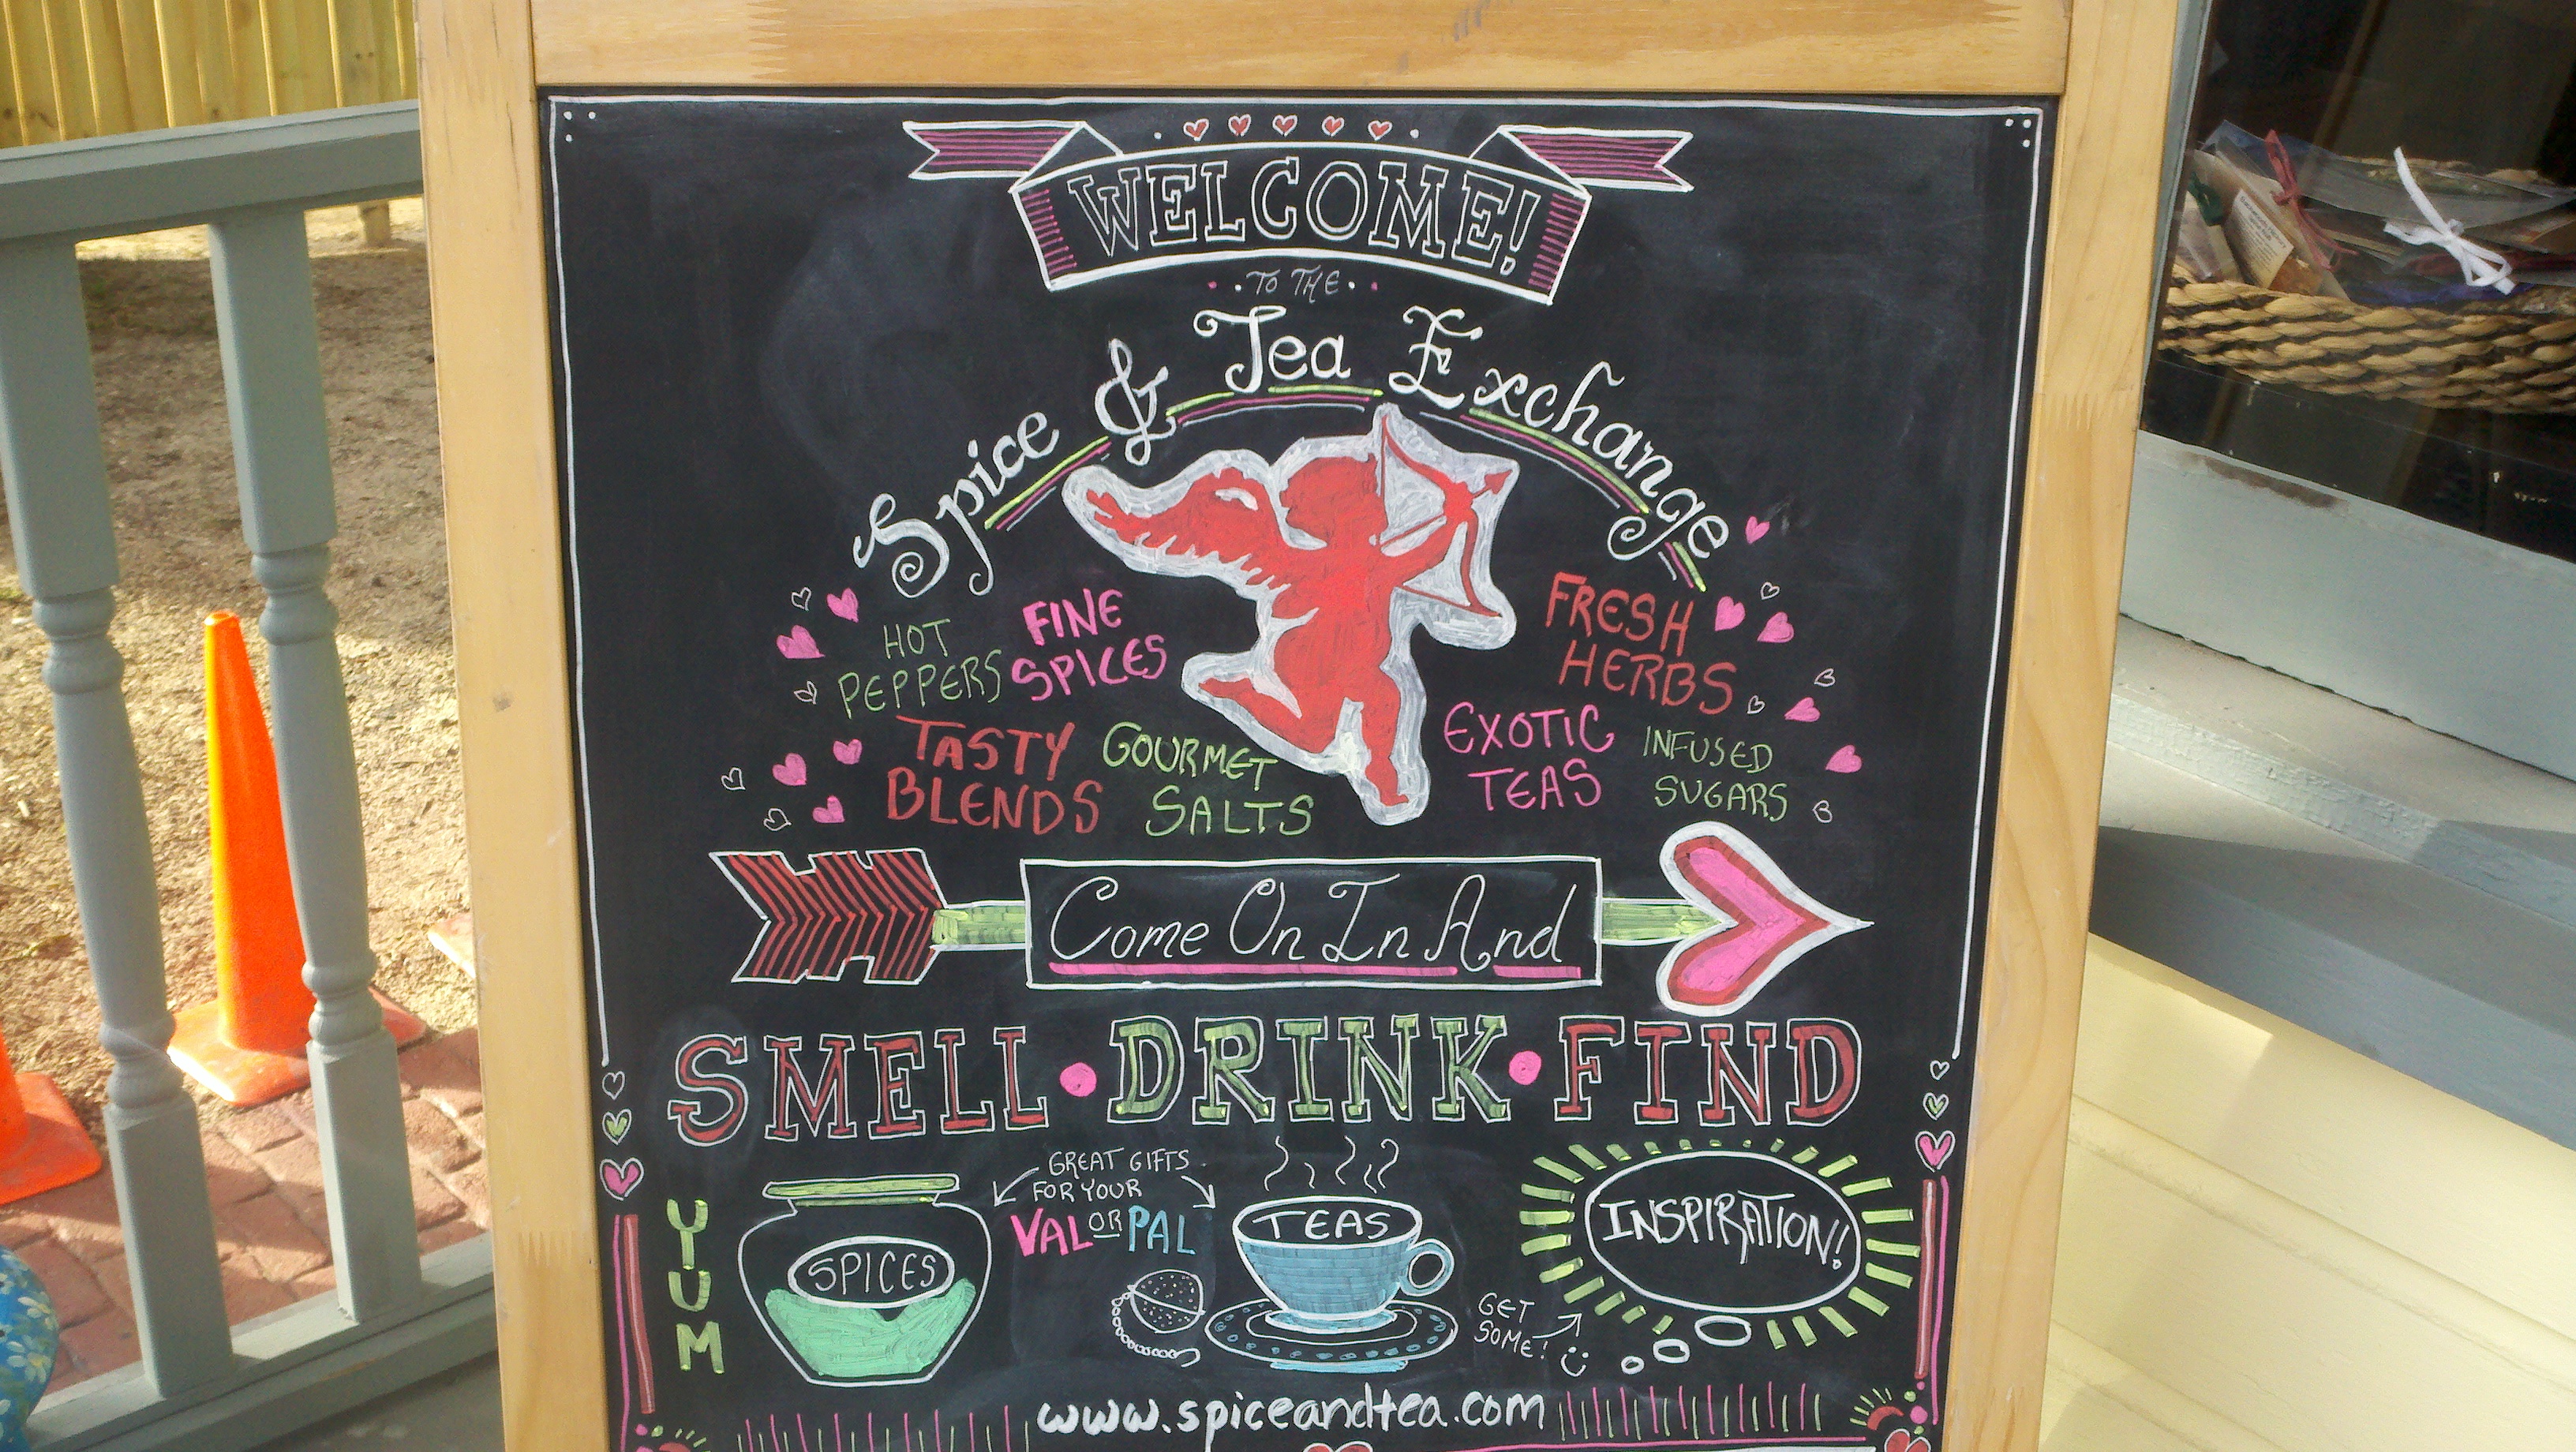 WELCOME!
TO THE
Spice & Tea Exchange
HOT
PEPPERS
FINE
SPICES
TASTY
BLENDS
GOURMET
SALTS
FRESH
HERBS
EXOTIC
TEAS
INFUSED
SUGARS
Come On In And
SMELL • DRINK • FIND
YUM
SPICES
GREAT GIFTS
FOR YOUR
VAL OR PAL
TEAS
GET
SOME!
INSPIRATION!
www.spiceandtea.com